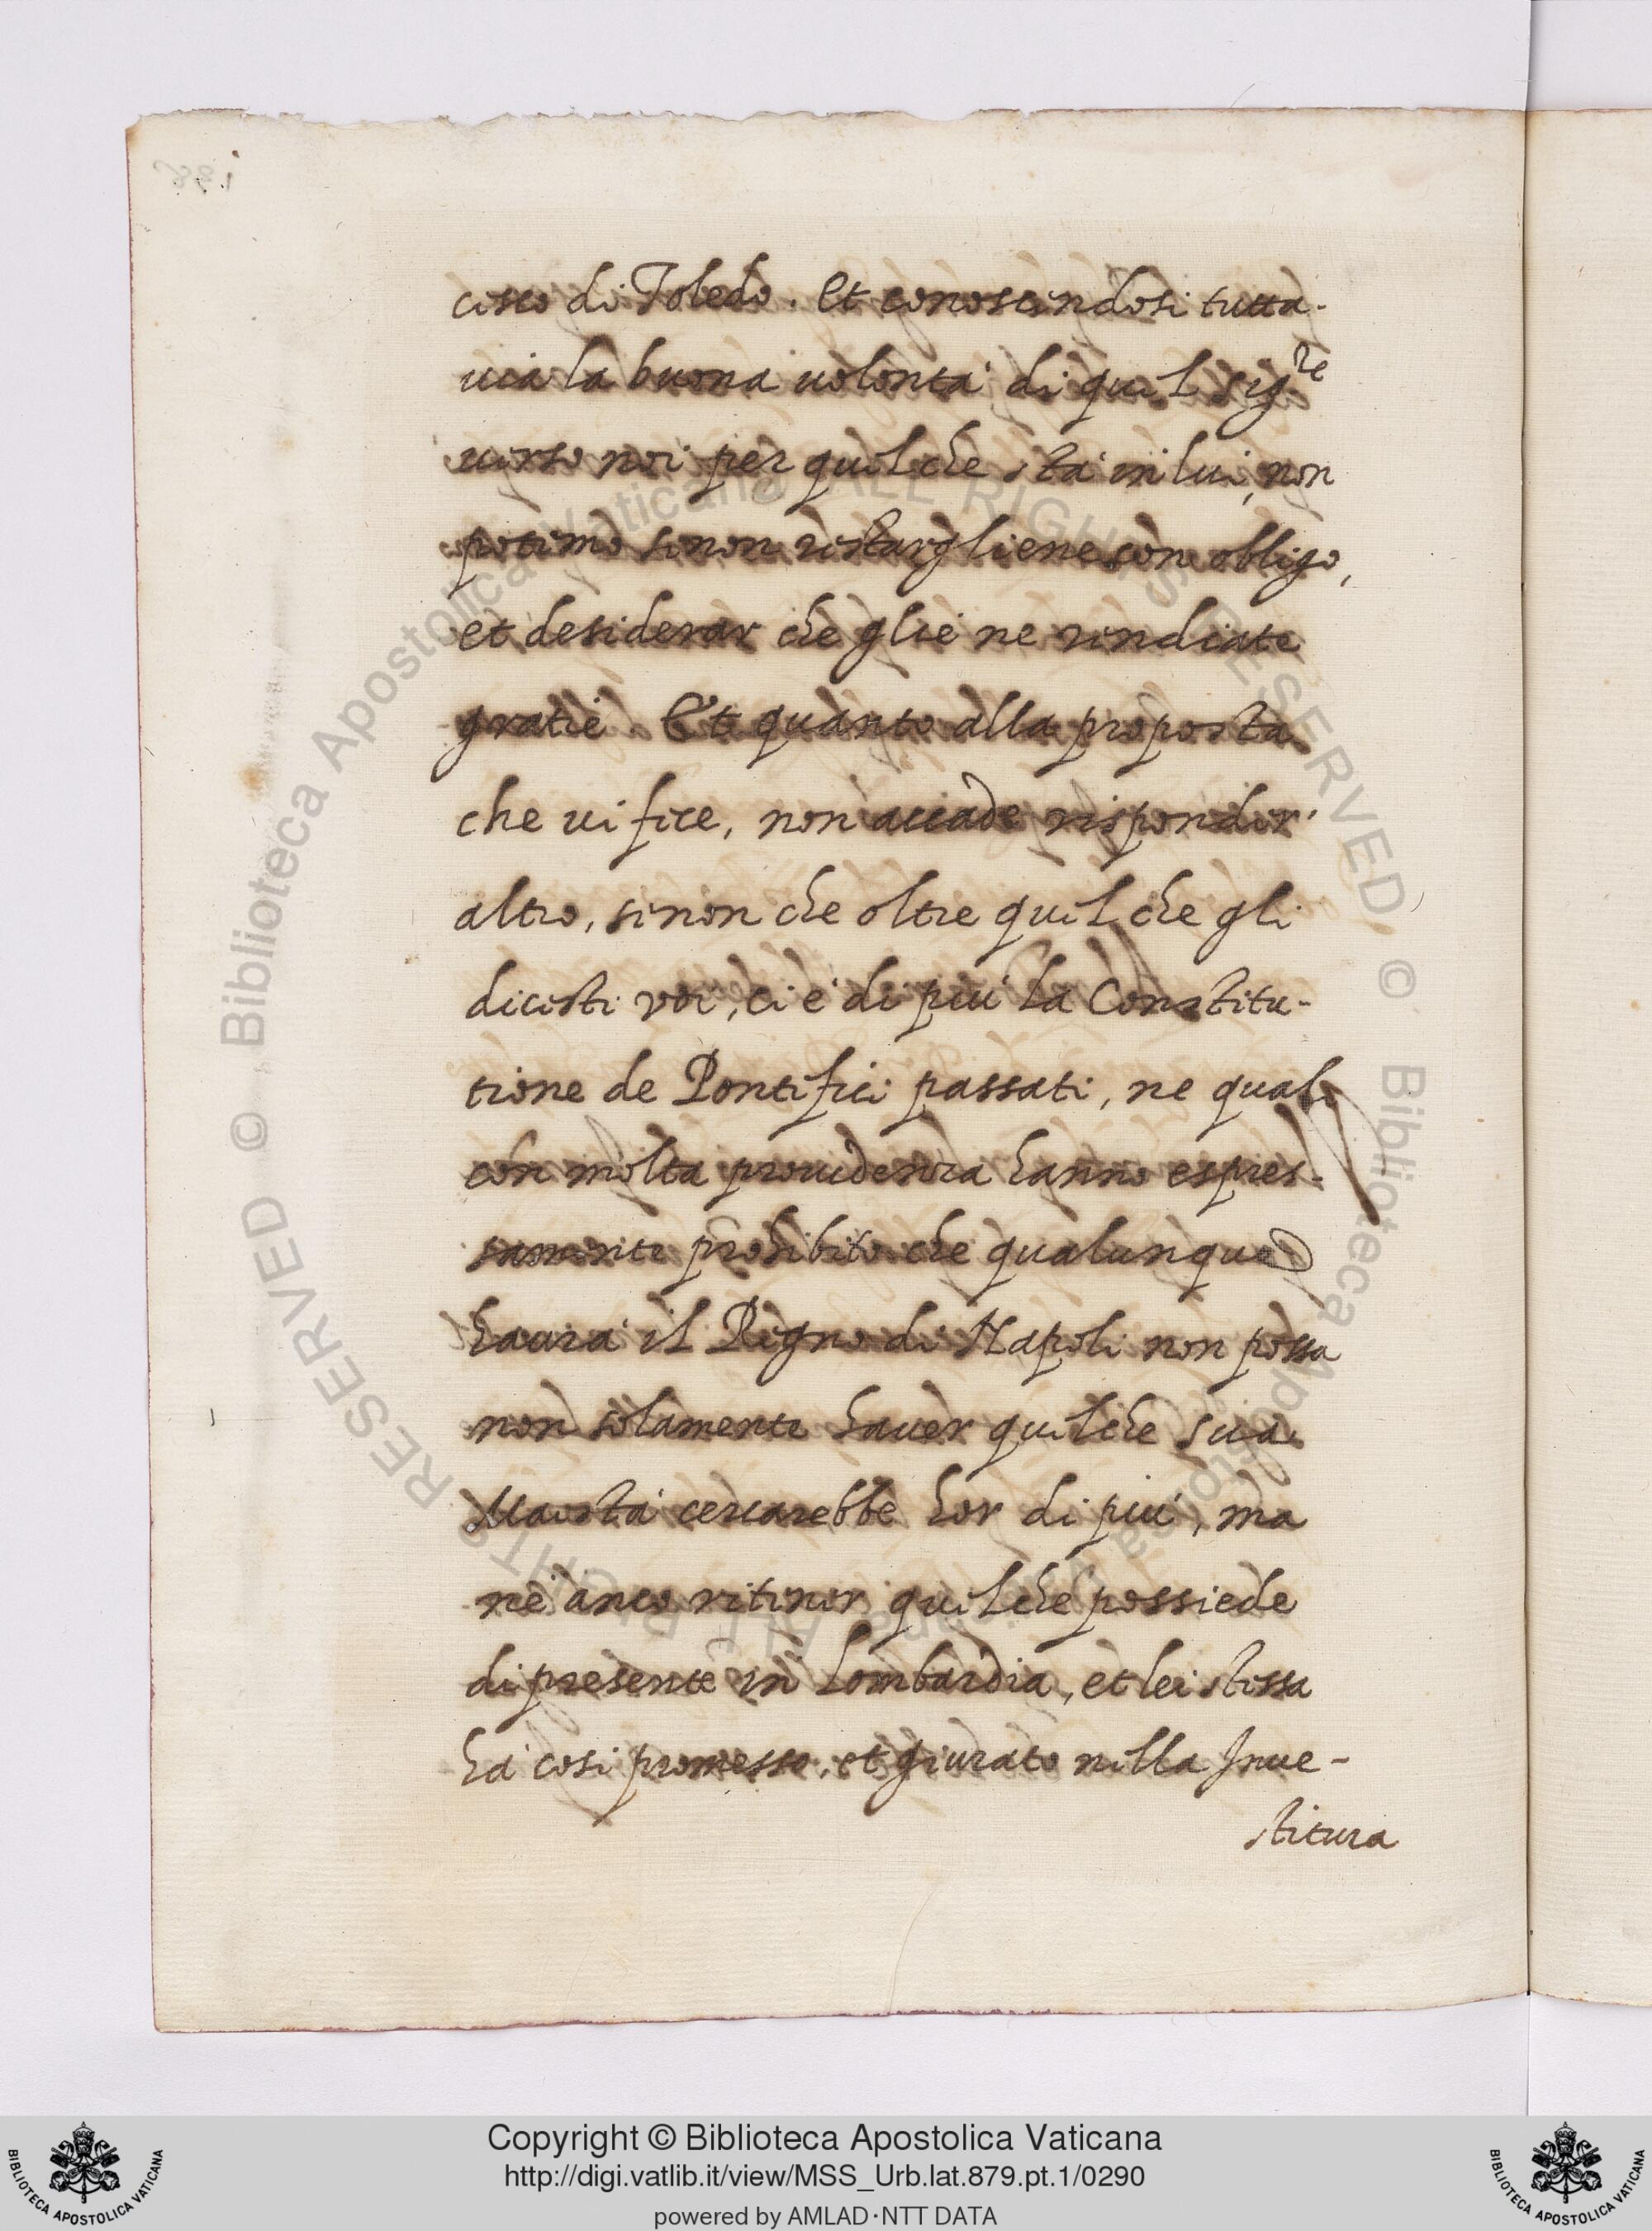 cisco di Toledo. Et conoscendosi tutta-
uia la buona uolontà di quel sig.re
uerso noi per quel che stà in lui, non
potemo se non restargliene con obligo,
et desiderar che gliè ne rendiate
gratie. Et quanto alla proposta
che ui fece, non accade risponder'
altro, se non che oltre quel che gli
dicesti voi, ci è di più la Constitu-
tione de Pontefici passati, ne quali
con molta prouidenza hanno espres-
samente prohibito che qualunque
haurà il Regno di Napoli non possa
non solamente hauer quel che sua
Maestà cercarebbe hor di più, ma
nè anco ritener quel che possiede
di presente in Lombardia, et lei stessa
hà cosi promesso, et giurato nella Inue-
stitura
Copyright © Biblioteca Apostolica Vaticana
http://digi.vatlib.it/view/MSS_Urb.lat.879.pt.1/0290
powered by AMLAD·NTT DATA
BIBLIOTECA APOSTOLICA VATICANA
BIBLIOTECA APOSTOLICA VATICANA
© Biblioteca Apostolica Vaticana ALL RIGHTS RESERVED © Biblioteca Apostolica Vaticana ALL RIGHTS RESERVED